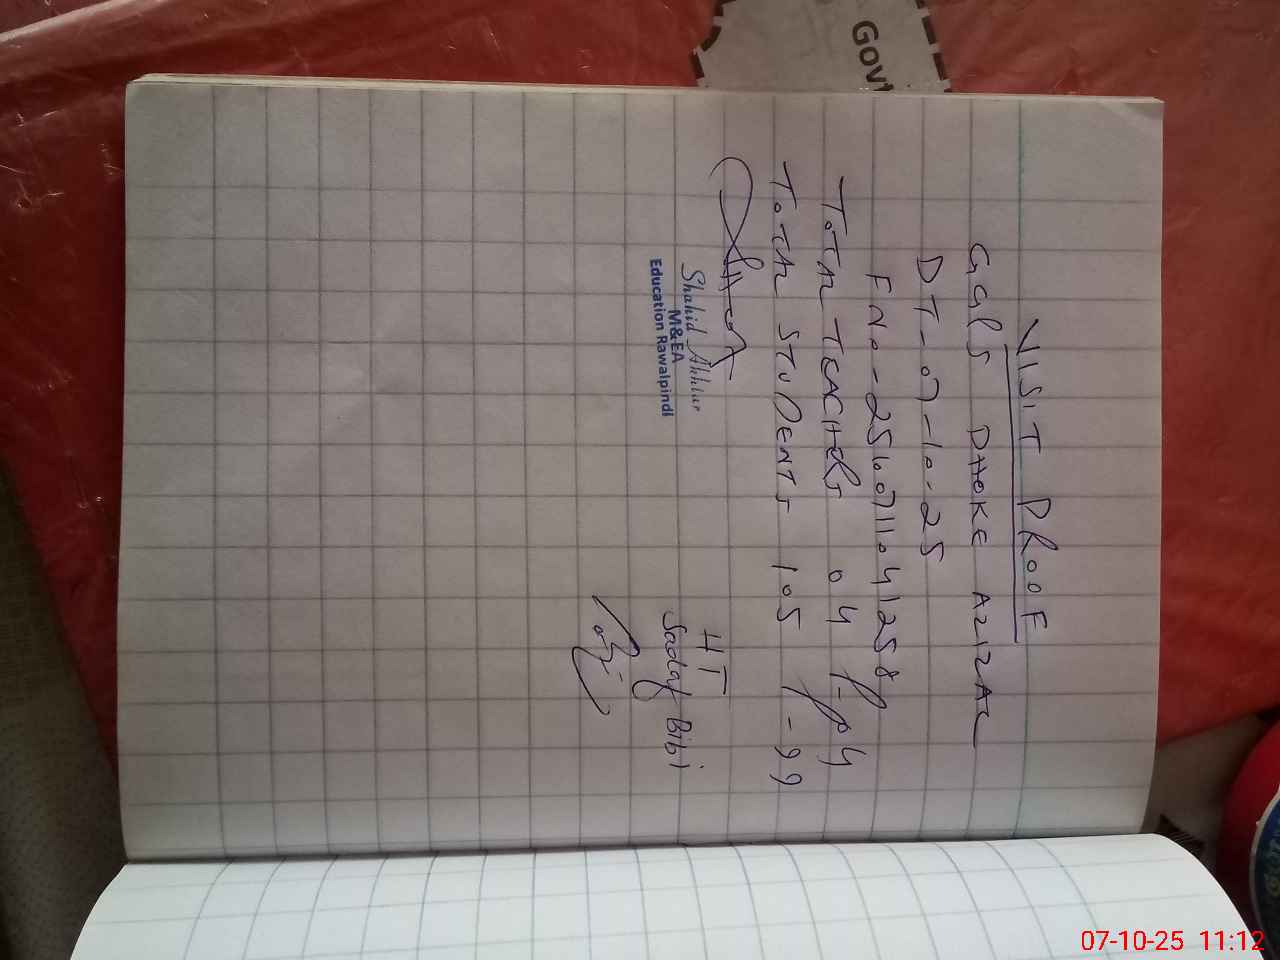 VISIT PROOF
GGPS DHOKE AZIZAL
DT-07-10-25
FNo-2560711041258
TOTAL TEACHERS 04 P-04
TOTAL STUDENTS 105 P-99
Shahid Akhtar
M&EA
Education Rawalpindi
HT
Sadaf Bibi
Govt
07-10-25 11:12